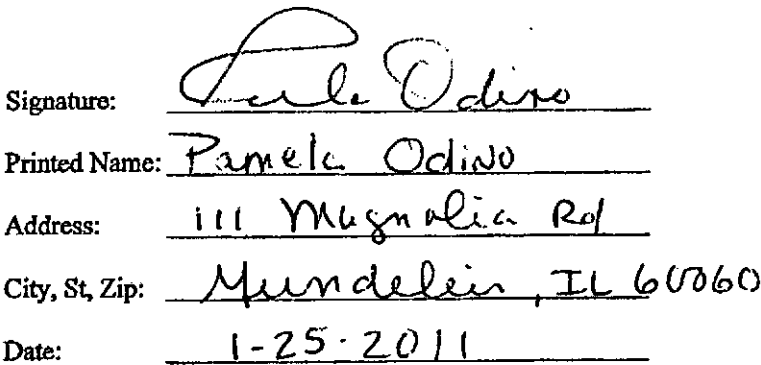 Signature: Pamela Odino
Printed Name: Pamela Odino
Address: 111 Magnolia Rd
City, St, Zip: Mundelein, IL 60060
Date: 1-25-2011